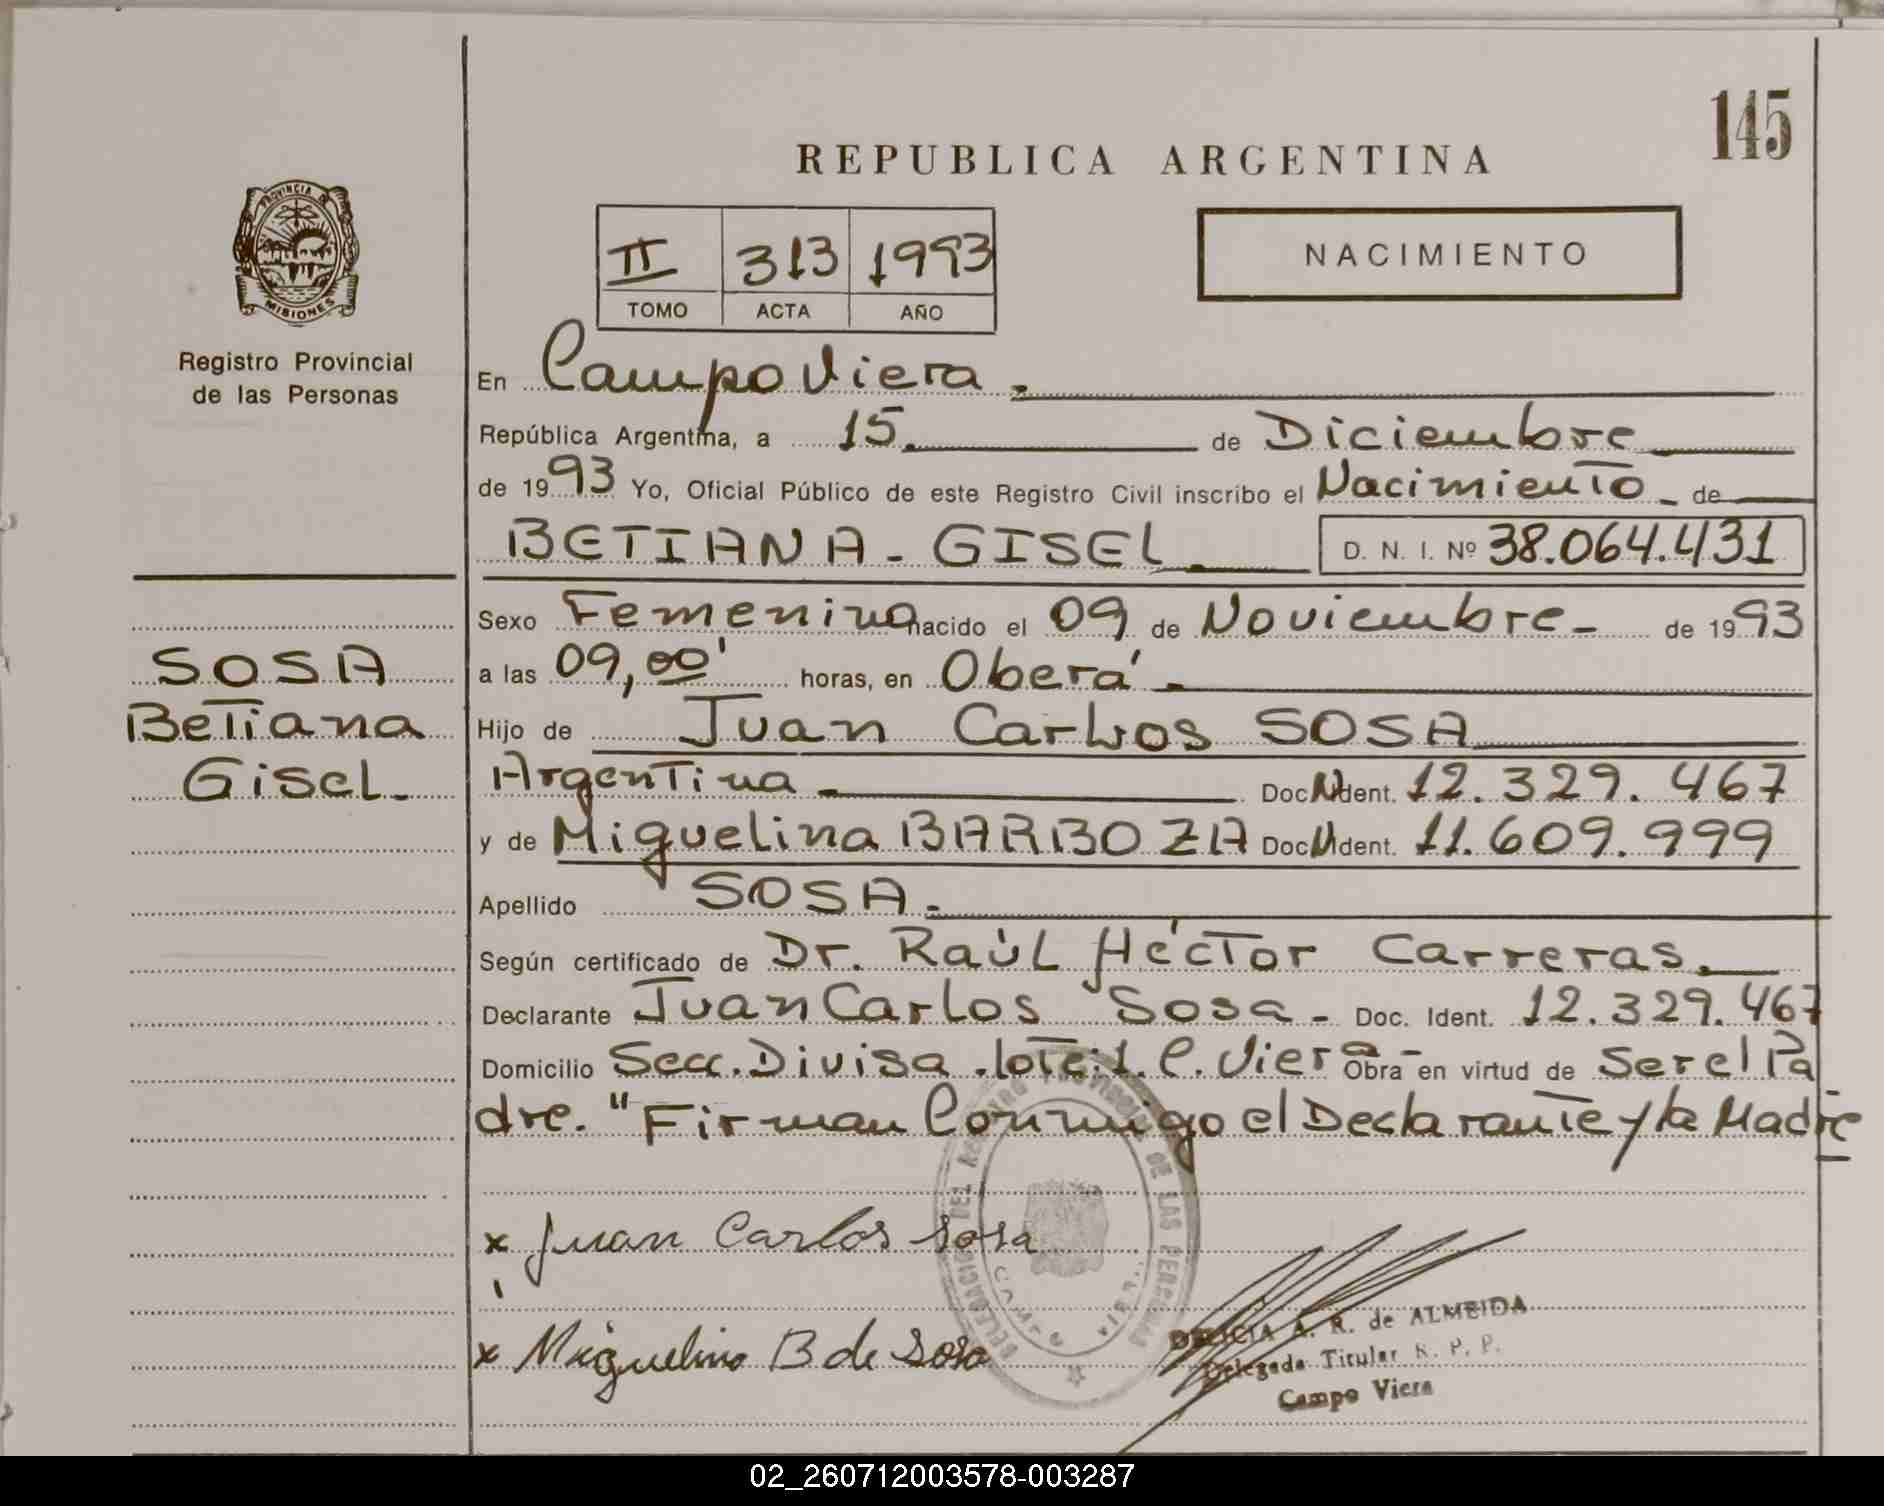 145
REPUBLICA ARGENTINA
PROVINCIA DE
MISIONES
Registro Provincial
de las Personas
II 313 1993
TOMO ACTA AÑO
NACIMIENTO
En Campo Viera.
República Argentina, a 15. de Diciembre
de 1993 Yo, Oficial Público de este Registro Civil inscribo el Nacimiento - de
BETIANA - GISEL D. N. I. Nº 38.064.431
Sexo Femenino nacido el 09 de Noviembre - de 1993
a las 09,00' horas, en Oberá -
Hijo de Juan Carlos SOSA
Argentina - Doc. Ident. 12.329.467
y de Miguelina BARBOZA Doc. Ident. 11.609.999
Apellido SOSA -
Según certificado de Dr. Raúl Héctor Carreras.
Declarante Juan Carlos Sosa - Doc. Ident. 12.329.467
Domicilio Secc. Divisa. lote:1. C. Viera - Obra en virtud de Ser el Pa
dre. " Firman Conmigo el Declarante y la Madre
SOSA
Betiana
Gisel -
x Juan Carlos Sosa
x Miguelina B de Sosa
DELEGACION DEL REGISTRO PROVINCIAL DE LAS PERSONAS
CAMPO VIERA
DELICIA A. R. de ALMEIDA
Delegada Titular R. P. P.
Campo Viera
02_260712003578-003287